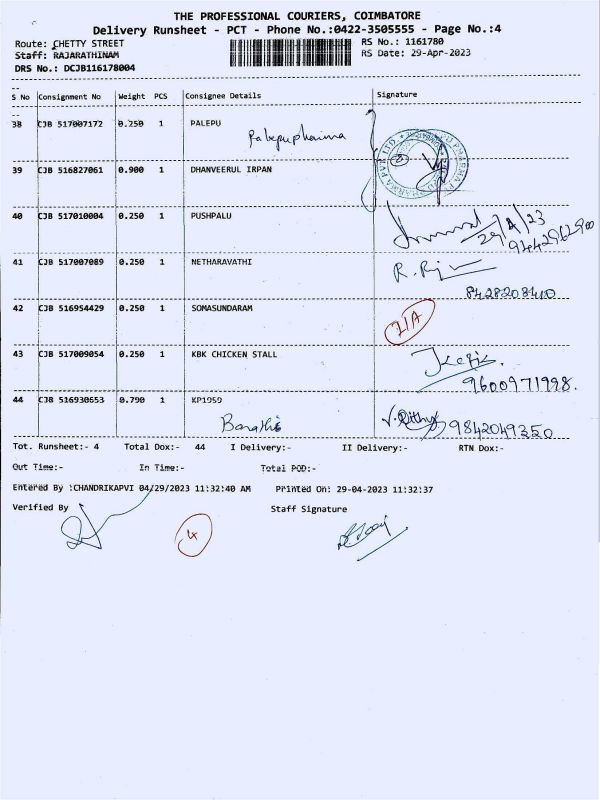 THE PROFESSIONAL COURIERS, COIMBATORE
Delivery Runsheet - PCT - Phone No.:0422-3505555 - Page No.:4
Route: CHETTY STREET RS No.: 1161780
Staff: RAJARATHINAM RS Date: 29-Apr-2023
DRS No.: DCJB116178004
S No Consignment No Weight PCS Consignee Details Signature
38 CJB 517007172 0.250 1 PALEPU
Palepu pharma
39 CJB 516827061 0.900 1 DHANVEERUL IRPAN
40 CJB 517010004 0.250 1 PUSHPALU
29/4/23
41 CJB 517007089 0.250 1 NETHARAVATHI
8428208410
42 CJB 516954429 0.250 1 SOMASUNDARAM
43 CJB 517009054 0.250 1 KBK CHICKEN STALL
9600971998.
44 CJB 516930653 0.790 1 KP1959
Barathi 9842049350
Tot. Runsheet:- 4 Total Dox:- 44 I Delivery:- II Delivery:- RTN Dox:-
Out Time:- In Time:- Total POD:-
Entered By :CHANDRIKAPVI 04/29/2023 11:32:40 AM Printed On: 29-04-2023 11:32:37
Verified By Staff Signature
4